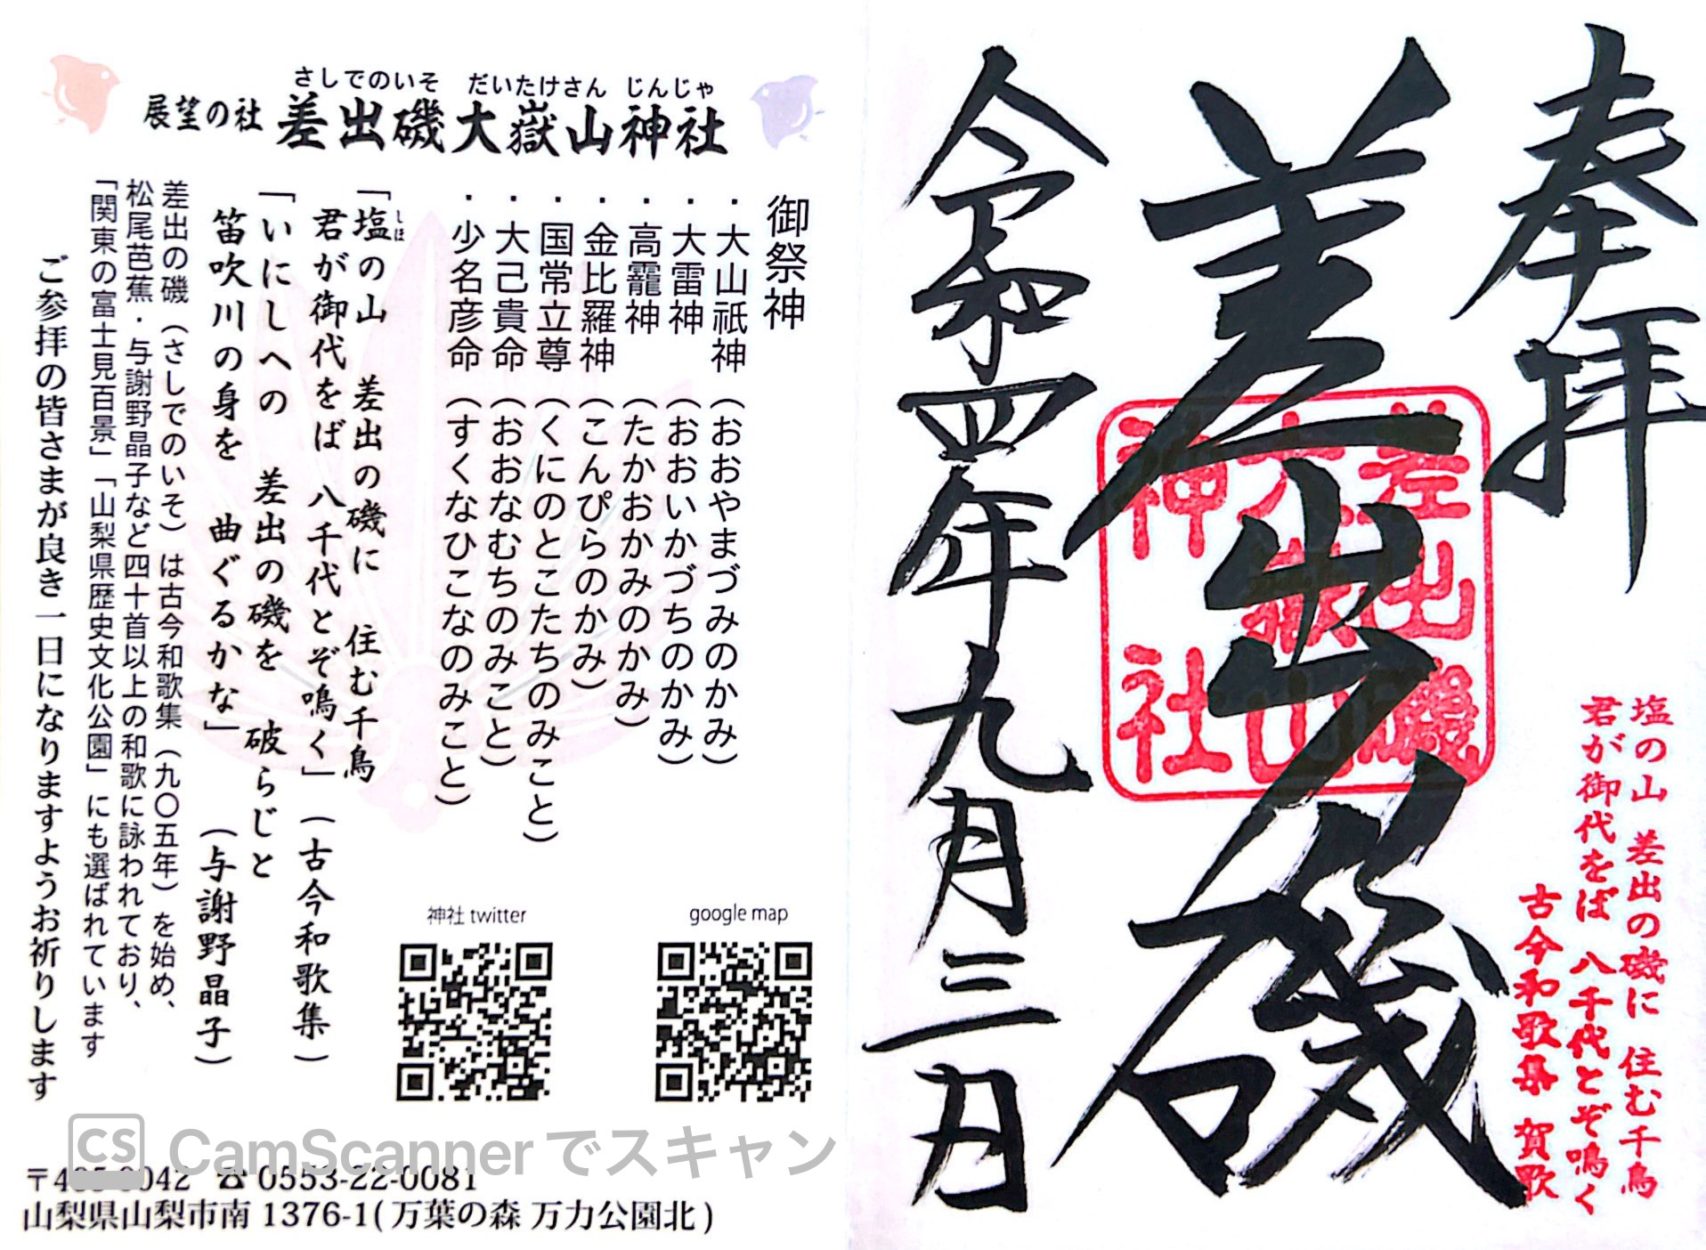 さしでのいそ だいたけさん じんじゃ
展望の社 差出磯大嶽山神社
御祭神
・大山祇神(おおやまづみのかみ)
・大雷神(おおいかづちのかみ)
・高龗神(たかおかみのかみ)
・金比羅神(こんぴらのかみ)
・国常立尊(くにのとこたちのみこと)
・大己貴命(おおなむちのみこと)
・少名彦命(すくなひこなのみこと)
「塩の山 差出の磯に 住む千鳥
しほ
君が御代をば 八千代とぞ鳴く」(古今和歌集)
「いにしへの 差出の磯を 破らじと
笛吹川の身を 曲ぐるかな」(与謝野晶子)
差出の磯(さしでのいそ)は古今和歌集(九〇五年)を始め、
松尾芭蕉・与謝野晶子など四十首以上の和歌に詠われており、
「関東の富士見百景」「山梨県歴史文化公園」にも選ばれています
ご参拝の皆さまが良き一日になりますようお祈りします
神社 twitter
google map
CS CamScannerでスキャン
〒405-0042 ☎0553-22-0081
山梨県山梨市南 1376-1(万葉の森 万力公園北)
奉拝
差出磯
令和四年九月三日
差出磯
大嶽山
神社
塩の山 差出の磯に 住む千鳥
君が御代をば 八千代とぞ鳴く
古今和歌集 賀歌